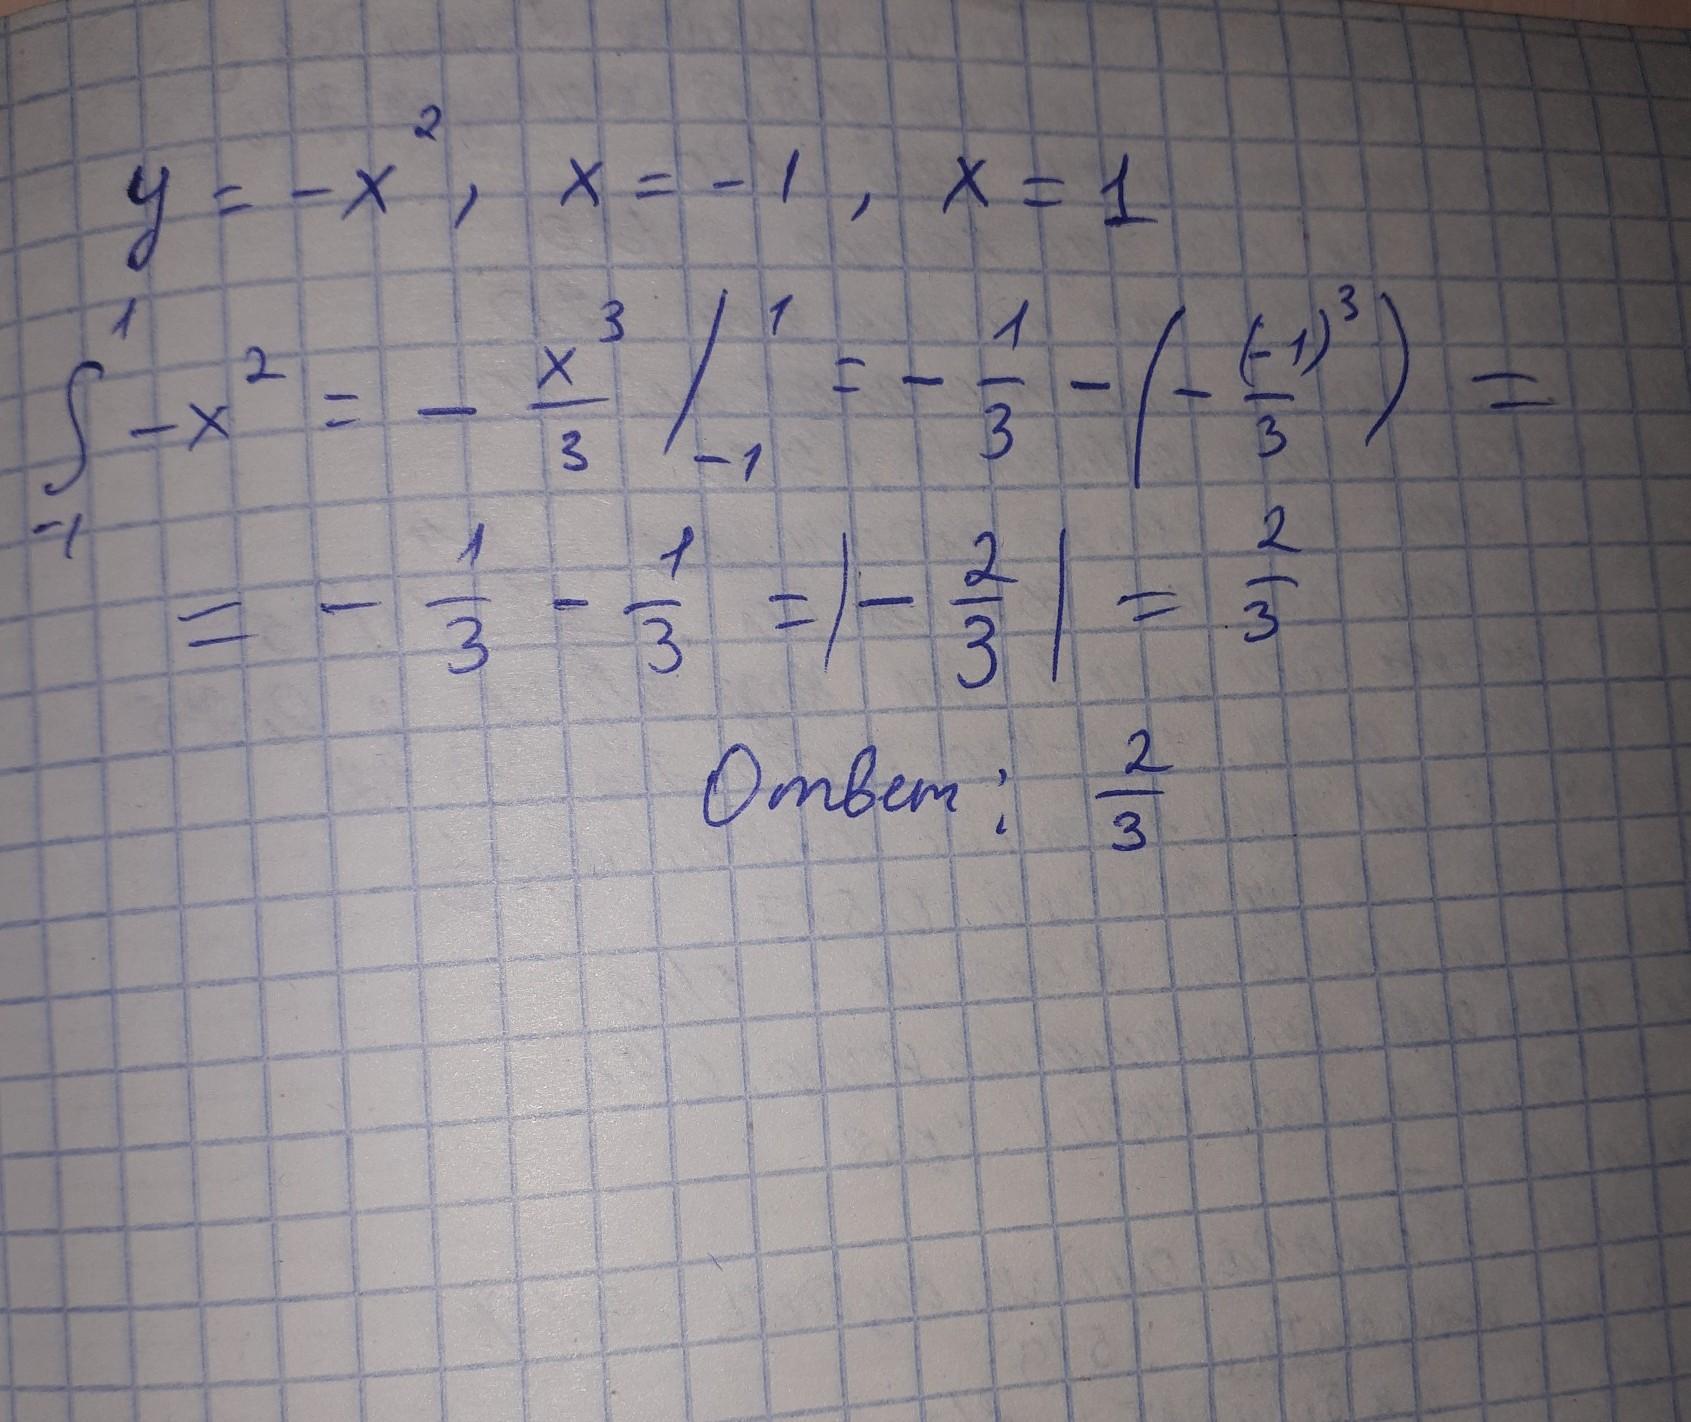 y = -x², x = -1, x = 1
∫₋₁¹ -x² = - x³/3 /₋₁¹ = - 1/3 - (- (-1)³/3) =
= - 1/3 - 1/3 = |- 2/3| = 2/3
Ответ: 2/3